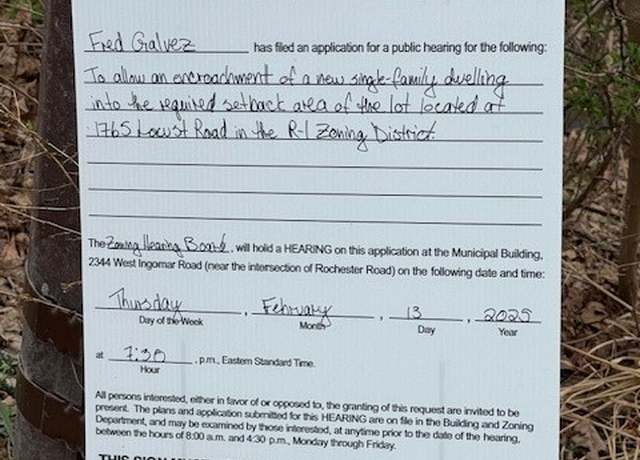 Fred Galvez has filed an application for a public hearing for the following:
To allow an encroachment of a new single-family dwelling
into the required setback area of the lot located at
1765 Locust Road in the R-1 Zoning District.
The Zoning Hearing Board, will hold a HEARING on this application at the Municipal Building,
2344 West Ingomar Road (near the intersection of Rochester Road) on the following date and time:
Thursday, February, 13, 2025
Day of the Week Month Day Year
at 7:30, p.m., Eastern Standard Time.
Hour
All persons interested, either in favor of or opposed to, the granting of this request are invited to be
present. The plans and application submitted for this HEARING are on file in the Building and Zoning
Department, and may be examined by those interested, at anytime prior to the date of the hearing,
between the hours of 8:00 a.m. and 4:30 p.m., Monday through Friday.
THIS SIGN